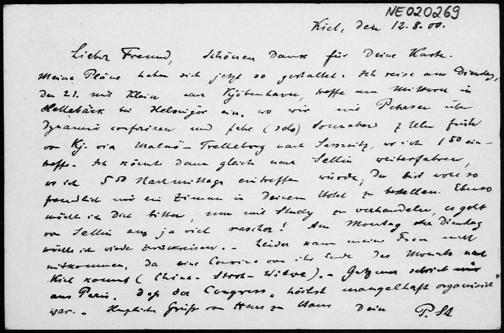 NE020269
Kiel, den 12.8.00.
Lieber Freund, schönen Dank für Deine Karte.
Meine Pläne haben sich jetzt so gestaltet. Ich reise am Dienstag,
den 21. mit Klein nach Kjöbenhavn, treffe am Mittwoch in
Hellebäck bei Helsingör ein, wo wir mit Petersen über
Dynamis conferiren und fahre (solo) Sonnabend 7 Uhr früh
von Kj. via Malmö-Trelleborg nach Sassnitz, wo ich 1 50 ein-
treffe. Ich könnte dann gleich nach Sellin weiterfahren,
wo ich 5 50 Nachmittags eintreffen würde; Du bist wohl so
freundlich mir ein Zimmer in Deinem Hotel zu bestellen. Ebenso
möchte ich Dich bitten, nun mit Study zu verhandeln, es geht
von Sellin aus ja viel rascher! Am Montag oder Dienstag
wollte ich wieder zurückreisen. - Leider kann meine Frau nicht
mitkommen, da eine Cousine von ihr Ende des Monats nach
Kiel kommt (China-Stroh-Witwe). - schrieb mir
aus Paris, dass der Congress "höchst mangelhaft organisirt"
war. - Herzliche Grüsse von Haus zu Haus Dein P. St.